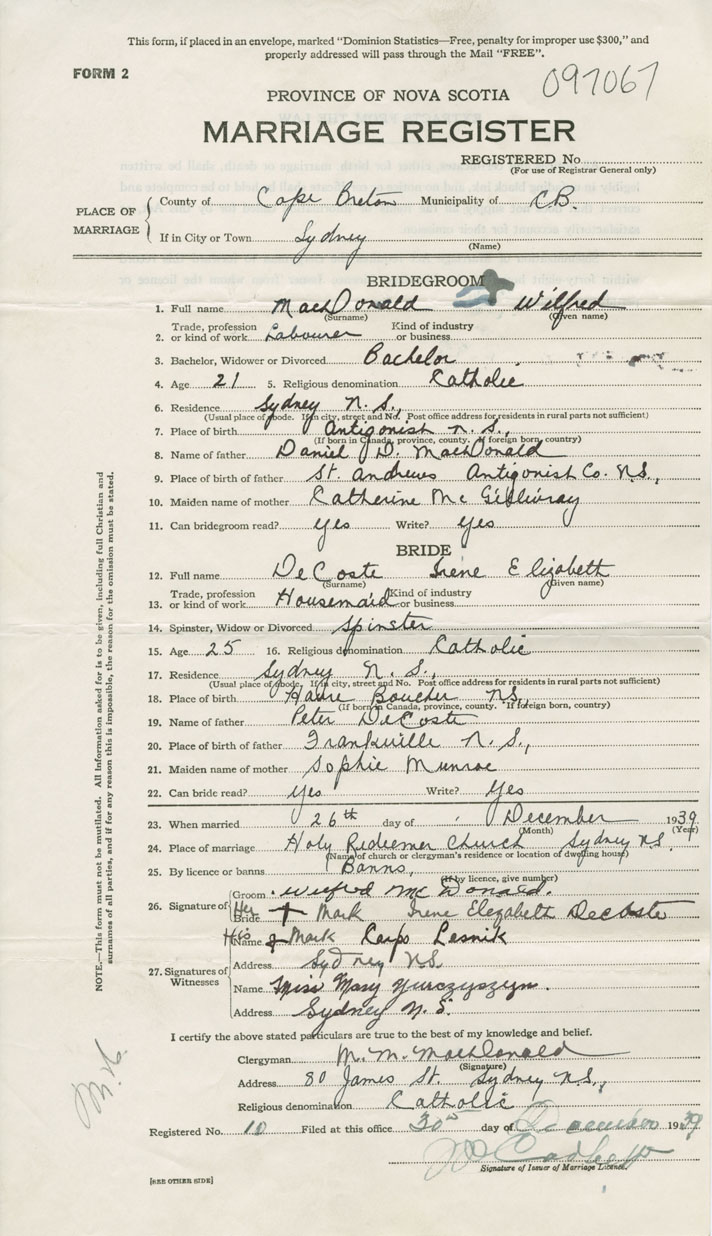 This form, if placed in an envelope, marked "Dominion Statistics—Free, penalty for improper use $300," and
properly addressed will pass through the Mail "FREE".
FORM 2
097067
PROVINCE OF NOVA SCOTIA
MARRIAGE REGISTER
REGISTERED No.
(For use of Registrar General only)
PLACE OF MARRIAGE
County of Cape Breton Municipality of C.B.
If in City or Town Sydney
(Name)
BRIDEGROOM
1. Full name MacDonald Wilfred
(Surname) (Given name)
2. Trade, profession or kind of work Labourer Kind of industry or business
3. Bachelor, Widower or Divorced Bachelor
4. Age 21 5. Religious denomination Catholic
6. Residence Sydney N.S.,
(Usual place of abode. If in city, street and No. Post office address for residents in rural parts not sufficient)
7. Place of birth Antigonish N.S.,
(If born in Canada, province, county. If foreign born, country)
8. Name of father Daniel D. MacDonald
9. Place of birth of father St. Andrews Antigonish Co. N.S.,
10. Maiden name of mother Catherine McGillivray
11. Can bridegroom read? yes Write? yes
BRIDE
12. Full name DeCoste Irene Elizabeth
(Surname) (Given name)
13. Trade, profession or kind of work Housemaid Kind of industry or business
14. Spinster, Widow or Divorced Spinster
15. Age 25 16. Religious denomination Catholic
17. Residence Sydney N.S.,
(Usual place of abode. If in city, street and No. Post office address for residents in rural parts not sufficient)
18. Place of birth Havre Boucher N.S.,
(If born in Canada, province, county. If foreign born, country)
19. Name of father Peter DeCoste
20. Place of birth of father Frankville N.S.,
21. Maiden name of mother Sophie Munroe
22. Can bride read? yes Write? Yes
23. When married 26th day of December 1939
(Month) (Year)
24. Place of marriage Holy Redeemer Church Sydney N.S.
(Name of church or clergyman's residence or location of dwelling house)
25. By licence or banns Banns,
(If by licence, give number)
26. Signature of
Groom Wilfred McDonald.
Bride Her Mark Irene Elezabeth DeCoste
27. Signatures of Witnesses
Name His Mark Karpo Lesnik
Address Sydney N.S.
Name Miss Mary Yurczyszyn.
Address Sydney N.S.
I certify the above stated particulars are true to the best of my knowledge and belief.
Clergyman M. M. MacDonald
(Signature)
Address 80 James St. Sydney N.S.,
Religious denomination Catholic
Registered No. 10 Filed at this office 30th day of December 1939
Signature of Issuer of Marriage Licence.
[SEE OTHER SIDE]
NOTE.—This form must not be mutilated. All information asked for is to be given, including full Christian and
surnames of all parties, and if for any reason this is impossible, the reason for the omission must be stated.